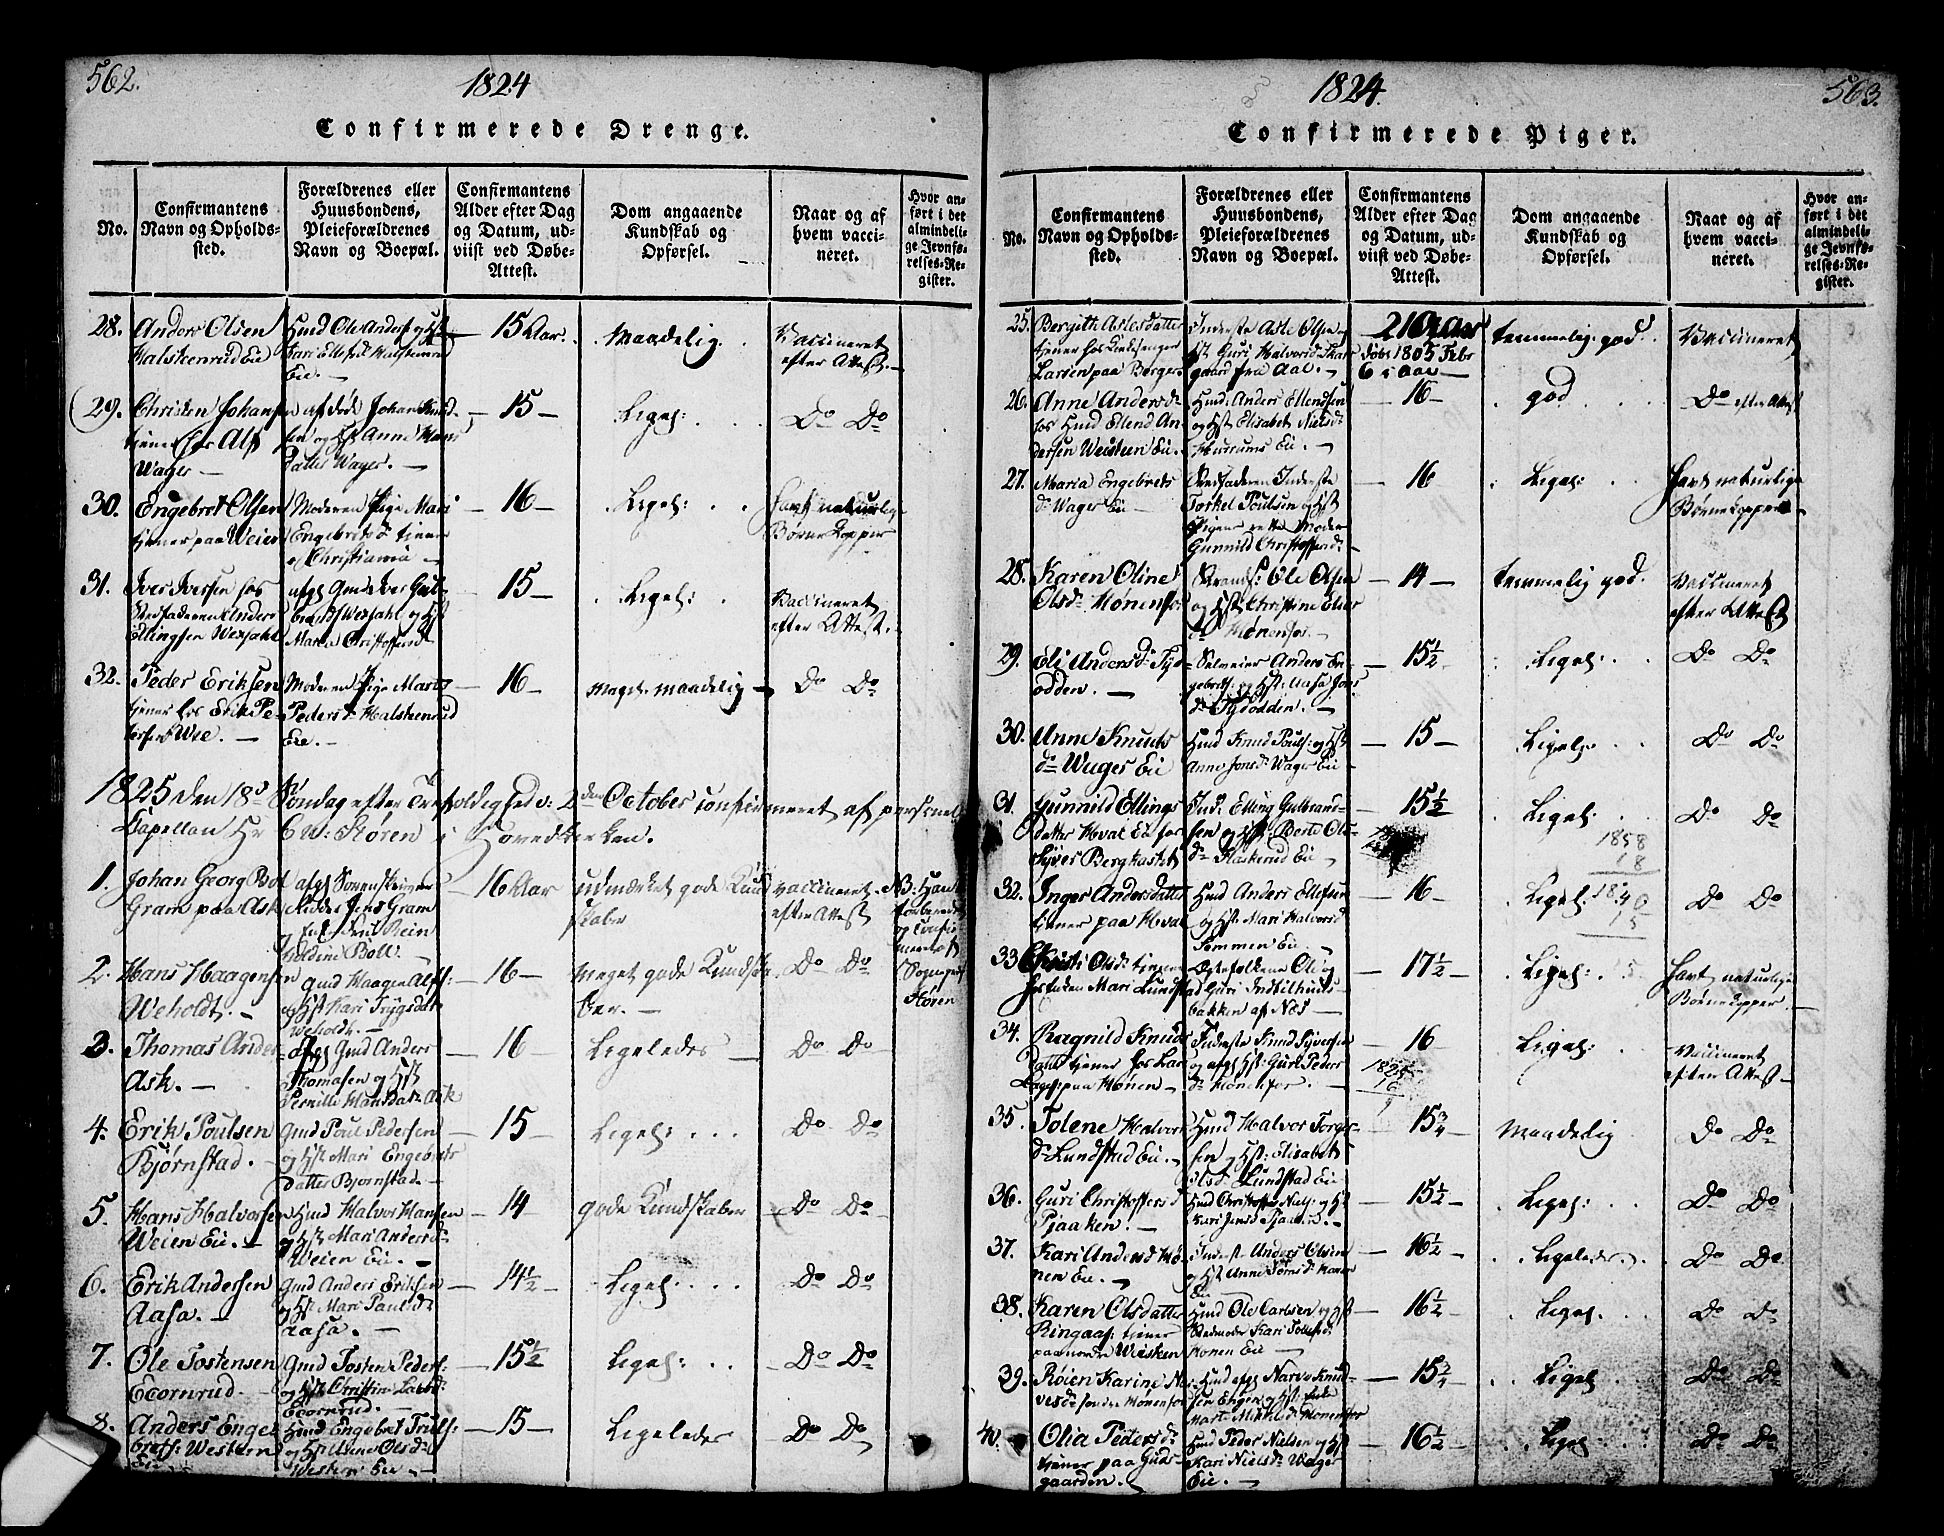 562.
1824
Confirmerede Drenge.
No.
Confirmantens
Navn og Opholds-
sted.
Forældrenes eller
Huusbondens,
Pleieforældrenes
Navn og Boepæl.
Confirmantens
Alder efter Dag
og Datum, ud-
viist ved Døbe-
Attest.
Dom angaaende
Kundskab og
Opførsel.
Naar og af
hvem vacci-
neret.
Hvor an-
ført i det
almindeli-
ge Jevnfø-
relses-Re-
gister.
28.
Anders Olsen
Halskenrud Eie
Hmd Ole Anders og Hst
Kari Ellefsd Halskenrud
Eie. —
15 Aar.
Maadelig.
Vaccineret
efter Attest. —
29.
Christen Johansen
tjener hos Alf
Wager —
af døde Johan Knud-
sen og Hst Anne Hans
Datter Wager. —
— 15 —
Ligel:
Do Do
30.
Engebret Olsen
tjener paa Weier
Moderen Pige Mari
Engebretsd tjener
i Christiania —
— 16 —
Ligel:
havt naturlige
Børne Kopper
31.
Iver Iversen hos
Stedfaderen Anders
Ellingsen Wexjahl
afg Gmd Iver Gul-
brands Wexjahl og Hst
Maren Christoffersd
— 15 —
Ligel:
Vaccineret
efter Attest. —
32.
Peder Eriksen
tjener hos Erik Pe-
tersen Wie. —
Moderen Pige Maria
Pedersd Halskenrud
Eie. —
— 16 —
Meget maadelig —
Do Do
1825 den 18de Søndag efter Trefoldighed v: 2den October confirmeret af personel
Capellan Hr C W: Støren i Hovedkirken.
1.
Johan Georg Bol
Gram paa Ask
afg Sorenskriver
Ridder Jens Gram
Hedine Boll. —
— 16 Aar
udmærket gode Kund-
skaber
vaccineret
efter Attest
NB: Han
forberedt
og confir
meret af
Sognepr
Støren
2.
Hans Haagensen
Weholdt. —
Gmd Haagen Alfs:
og Hst Kari Trygsdatter
Weholdt. —
— 16 —
Meget gode Kundska-
ber. —
Do Do
3.
Thomas Anders
Ask. —
afg Gmd Anders
Thomasen og Hst
Pernille Hansdatter Ask
— 16
Ligeledes —
Do Do
4.
Erik Poulsen
Bjørnstad. —
Gmd Poul Pedersen
og Hst Mari Engebrets
Datter Bjørnstad. —
— 15 —
Ligel:
Do Do
5.
Hans Halvorsen
Weien Eie. —
Hmd Halvor Hansen
og Hst Mari Andersd
Weien Eie. —
— 14
gode Kundskaber
Do Do
6.
Erik Andersen
Aasa. —
Gmd Anders Eriksen
og Hst Mari Paulsd
Aasa. —
— 14½ —
Ligel:
Do Do
7.
Ole Tostensen
Ecornrud. —
Gmd Tosten Peders:
og Hst Christine Larsd
Ecornrud. —
— 15½
Ligel:
— Do Do
8.
Anders Enge-
brets: Western
Eie
Hmd Engebret Truls:
og Hst Anne Olsd
Western Eie —
— 15 —
Ligeledes
Do Do
1824.
563.
Confirmerede Piger.
No.
Confirmantens
Navn og Opholds-
sted.
Forældrenes eller
Huusbondens,
Pleieforældrenes
Navn og Boepæl.
Confirmantens
Alder efter Dag
og Datum, ud-
viist ved Døbe-
Attest.
Dom angaaende
Kundskab og
Opførsel.
Naar og af
hvem vacci-
neret.
Hvor an-
ført i det
almindeli-
ge Jevnfø-
relses-Re-
gister.
25.
Bergith Aslesdatter
tjener hos Kirkesanger
Larsen paa Berger
Inderste Asle Olsen og
Hst Guri Halvorsd Skar-
gaard fra Aal. —
døbt 1805 Febr
6 i Aal —
temmelig god.
Vaccineret
26.
Anne Andersd
hos Hmd Ellend An-
dersen Weisteen Eie. —
Hmd: Anders Ellendsen
og Hst Elisabet Nielsd
Hurrums Eie. —
— 16 —
god
Do efter Attest
27.
Maria Engebrets
d Wager Eie —
Stedfaderen Inderste
Torkel Poulsen og Hst
Pigens rette Moder
Gunnild Christoffersd —
— 16
Ligel:
havt naturlige
Børnekopper —
28.
Karen Oline
Olsd Hønenfos
Strands: Ole Olsen
og Hst Christine Elias
d Hønenfos. —
— 14 —
temmelig god.
Vaccineret
efter Attest
29.
Eli Andersd Tyd-
odden. —
Selveier Anders En-
gebrets: og Hst: Aasa Jons
d Tydodden. —
— 15½
Ligel:
Do Do
30.
Anne Knuds
d Wager Eie
Hmd Knud Pouls: og Hst
Anne Jonsd Wager Eie —
— 15 —
Ligel:
Do Do
31.
Gunnild Ellings
datter Hval Eie hos
Syver Bergkastet
Ind: Elling Gulbrand-
sen og Hst: Berte Ols-
d Haskerud Eie —
15½
Ligel:
Do Do
1858
18
1840
15
32.
Inger Andersdatter
tjener paa Hval
Hmd Anders Ellefsen
og Hst: Mari Halvorsd
Semmen Eie. —
— 16
Ligel:
Do Do
33
Christi Olsd: tjener
hos Enken Mari Lundstad
Ægtefolkene Ole og
Guri Indsilhuus-
bakken af Næs —
— 17½
Ligel:
havt naturlige
Børnekopper —
34.
Ragnild Knuds
Datter tjener hos Lars
Lages: paa Hønen —
Inderste Knud Syversen
og afg Hst: Guri Peders
d Hønenfos. —
— 16
1825
16
Ligel:
Vaccineret
efter Attest —
35.
Tolene Halvors
d Lundstad Eie. —
Hmd Halvor Torger-
sen og Hst: Elisabet
Olsd Lundstad Eie —
— 15¾
Maadelig
Do Do
36.
Guri Christoffersd
Pjaaken. —
Hmd Christoffer Niels: og Hst
Kari Jensd Pjaaken. —
— 15½ —
Ligel:
Do Do
37.
Kari Andersd Hø-
nen Eie. —
Inderst Anders Olsen
og Hst Anne Sørensd Hønen
Eie
— 16½ —
Ligeledes.
Do Do
38.
Karen Olsdatter
Ringaas: tjener
paa nordre Weisten
Hmd Ole Carlsen og Hst
Stedmoder Kari Tollefsd
Hønen Eie —
— 16½
Ligel.
Do Do
39.
Røien Karine Nar-
vesd sønden Hønenfos
Hmd afg Narve Knud-
sen Engen og Hst: Enke
Marte Mikkelsd Hønenfos
— 15¾ —
Ligel.
Do Do
40.
Olia Pedersd
tjener paa Guds-
gaarden. —
Hmd Peder Nielsen og Hst
Kari Nielsd Wager
Eie. —
— 16½ —
Ligel:
Do Do